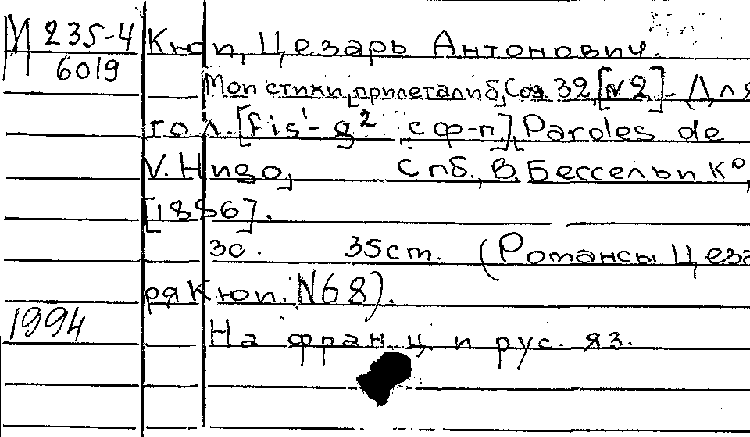 И 235-4
6019
Кюи, Цезарь Антонович.
Мои стихи прилетали б, Соч. 32, [№2] - Для
гол. [fis'-g² с ф-п]. Paroles de
V. Hugo, Спб., В. Бессель и К°,
[1886].
3с. 35ст. (Романсы Цеза
ря Кюи. №68).
1994
На франц. и рус. яз.